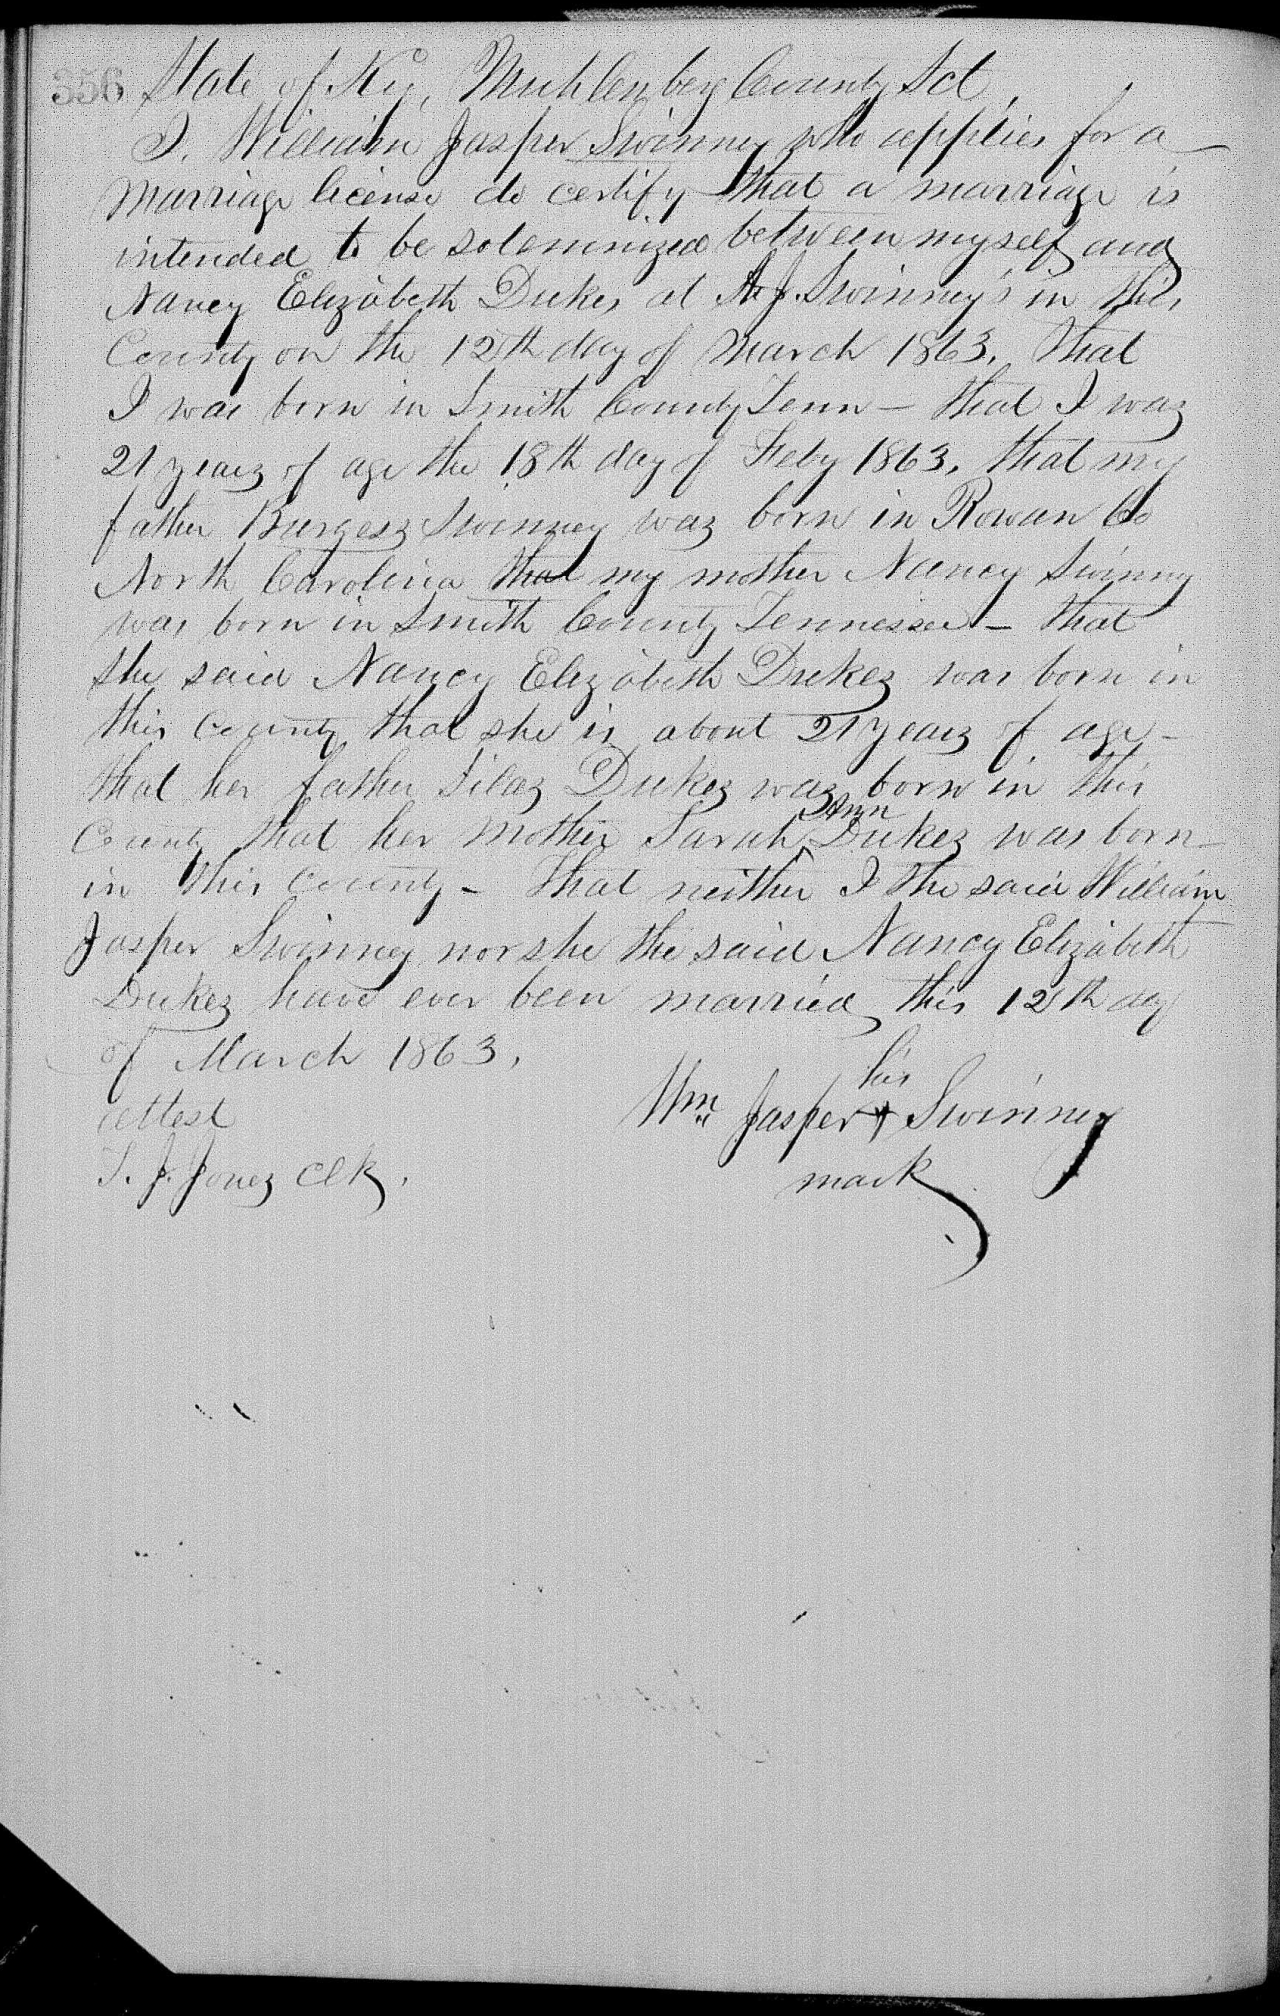 356 State of Ky, Muhlenberg County Sct,
I. William Jasper Swinney who applies for a
marriage license do certify that a marriage is
intended to be solemnized between myself and
Nancy Elizabeth Dukes at A. J. Swinney's in this
County on the 12th day of March 1863. That
I was born in Smith County Tenn – that I was
21 years of age the 18th day of Feby 1863. that my
father Burgess Swinney was born in Rowan Co
North Carolina that my mother Nancy Swinny
was born in Smith County Tennessee – that
the said Nancy Elizabeth Dukes was born in
this County that she is about 21 years of age –
that her father Silas Dukes was born in this
Ann
County that her mother Sarah ^ Dukes was born –
in this County – That neither I the said William
Jasper Swinney nor she the said Nancy Elizabeth
Dukes have ever been married, this 12th day
of March 1863,
his
Wm Jasper + Swinney
mark
attest
T. J. Jones Clk.